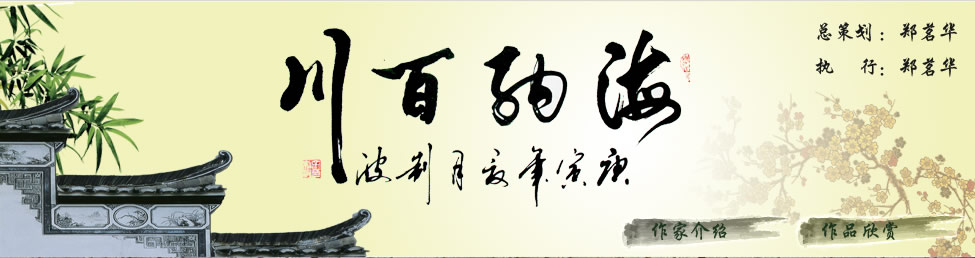 海纳百川
庚寅年夏月
总策划：郑茗华
执　行：郑茗华
作家介绍
作品欣赏